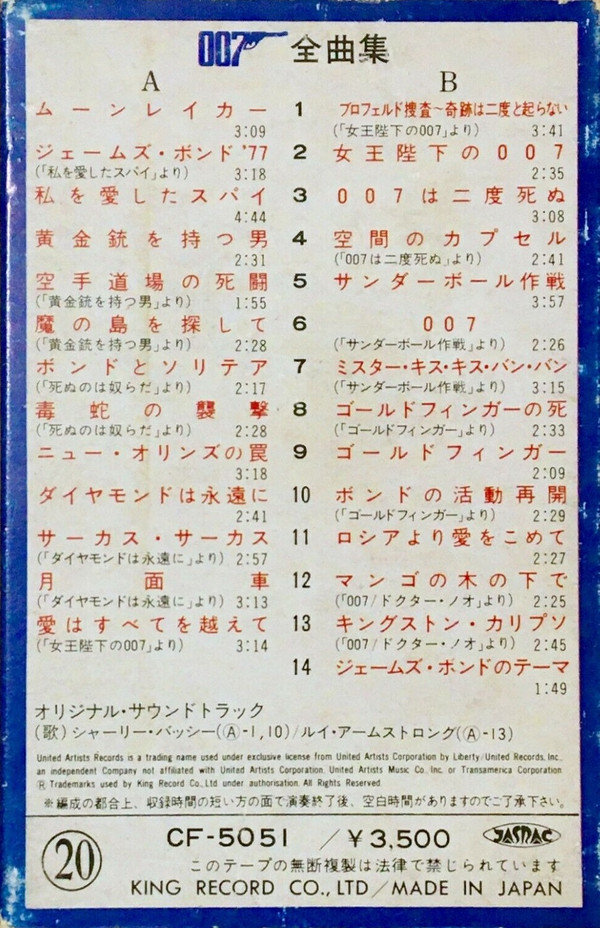 007 全曲集
A B
ムーンレイカー 1 ブロフェルド捜査~奇跡は二度と起らない
3:09 (「女王陛下の007」より) 3:41
ジェームズ・ボンド '77 2 女王陛下の007
(「私を愛したスパイ」より) 3:18 2:35
私を愛したスパイ 3 007は二度死ぬ
4:44 3:08
黄金銃を持つ男 4 空間のカプセル
2:31 (「007は二度死ぬ」より) 2:41
空手道場の死闘 5 サンダーボール作戦
(「黄金銃を持つ男」より) 1:55 3:57
魔の島を探して 6 007
(「黄金銃を持つ男」より) 2:28 (「サンダーボール作戦」より) 2:26
ボンドとソリテア 7 ミスター・キス・キス・バン・バン
(「死ぬのは奴らだ」より) 2:17 (「サンダーボール作戦」より) 3:15
毒蛇の襲撃 8 ゴールドフィンガーの死
(「死ぬのは奴らだ」より) 2:28 (「ゴールドフィンガー」より) 2:33
ニュー・オリンズの罠 9 ゴールドフィンガー
3:18 2:09
ダイヤモンドは永遠に 10 ボンドの活動再開
2:41 (「ゴールドフィンガー」より) 2:29
サーカス・サーカス 11 ロシアより愛をこめて
(「ダイヤモンドは永遠に」より) 2:57 2:27
月面車 12 マンゴの木の下で
(「ダイヤモンドは永遠に」より) 3:13 (「007/ドクター・ノオ」より) 2:25
愛はすべてを越えて 13 キングストン・カリプソ
(「女王陛下の007」より) 3:14 (「007/ドクター・ノオ」より) 2:45
14 ジェームズ・ボンドのテーマ
1:49
オリジナル・サウンドトラック
(歌) シャーリー・バッシー(Ⓐ-1,10)/ルイ・アームストロング(Ⓐ-13)
United Artists Records is a trading name used under exclusive license from United Artists Corporation by Liberty/United Records, Inc.,
an independent Company not affiliated with United Artists Corporation, United Artists Music Co, Inc. or Transamerica Corporation.
Ⓡ Trademarks used by King Record Co., Ltd under authorisation. All Rights Reserved.
※編成の都合上、収録時間の短い方の面で演奏終了後、空白時間がありますのでご了承下さい。
⑳ CF-5051 / ¥3,500 JASRAC
このテープの無断複製は法律で禁じられています
KING RECORD CO., LTD/MADE IN JAPAN